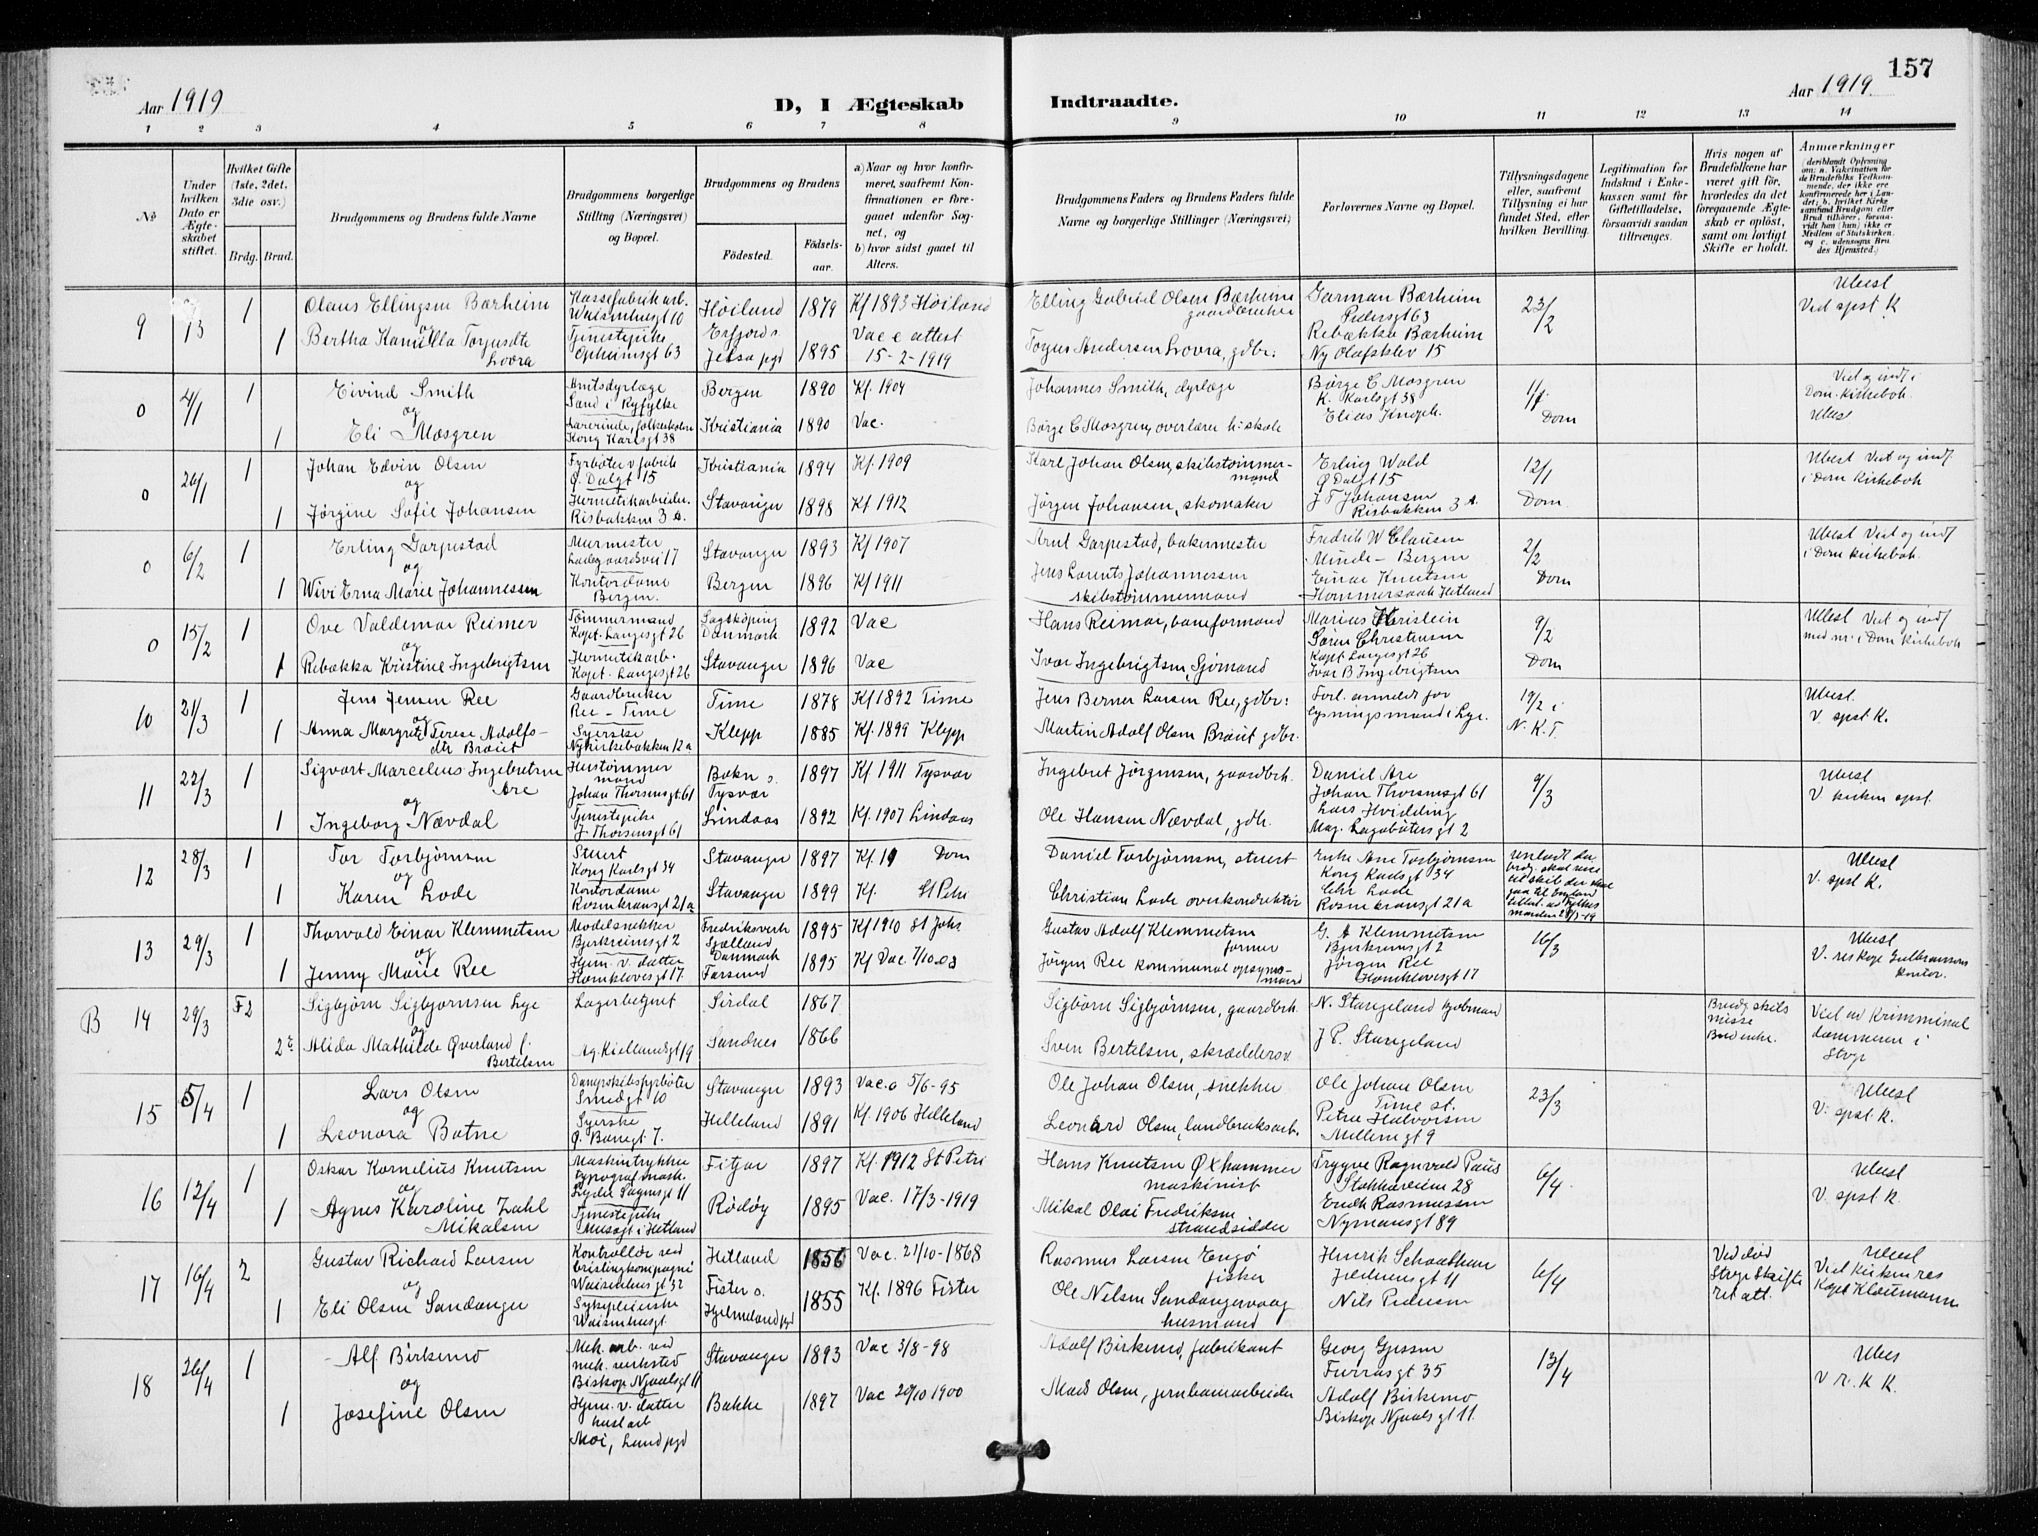 157
Aar 1919
D, I Ægteskab
Indtraadte.
Aar 1919.
1 2 3 4 5 6 7 8 9 10 11 12 13 14
No
Under hvilken Dato er Ægteskabet stiftet.
Hvilket Gifte (1ste, 2det, 3die osv.)
Brdg. Brud.
Brudgommens og Brudens fulde Navne
Brudgommens borgerlige Stilling (Næringsvei) og Bopæl.
Brudgommens og Brudens
Fødested.
Fødselsaar.
a) Naar og hvor konfirmeret, saafremt Konfirmationen er foregaaet udenfor Sognet, og
b) hvor sidst gaaet til Alters.
Brudgommens Faders og Brudens Faders fulde Navne og borgerlige Stillinger (Næringsvei)
Forlovernes Navne og Bopæl.
Tillysningsdagene eller, saafremt Tillysning ei har fundet Sted, efter hvilken Bevilling.
Legitimation for Indskud i Enkekassen samt for Giftetilladelse, forsaavidt saadan tiltrænges.
Hvis nogen af Brudefolkene har været gift før, hvorledes da det foregaaende Ægteskab er opløst, samt om lovligt Skifte er holdt.
Anmærkninger
9 13 1 Olaus Ellingsen Bærheim Kassefabrikarb. Waisenhusgt 10 Høiland 1879 Kf 1893 Høiland Elling Gabriel Olsen Bærheim gaardbruker German Bærheim Pedersgt 63 23/2 Ubest Ved spst K
og
1 Bertha Kamilla Torjusdtr Lovra Tjenestepike Opheimsgt 63 Erfjord s. Jelsa pgd 1895 Vac e attest 15-2-1919 Torjus Andersen Lovra, gdbr: Rebækka Bærheim Ny Olafsklev 15
0 4/1 1 Eivind Smith Amtsdyrlæge Sand i Ryfylke Bergen 1890 Kf. 1904 Johannes Smith, dyrlæge Børge C Mosgren K. Karlsgt 38 1/1 Dom Vid og indf i Dom. kirkebok. Ubest
og
1 Eli Mosgren Lærerinde, folkeskolen Kong Karlsgt 38 Kristiania 1890 Vac. Børge C Mosgren, overlærer h: skole Elias Knoph.
0 26/1 1 Johan Edvin Olsen Fyrbøter v fabrik Ø Dalgt 15 Kristiania 1894 Kf. 1909 Karl Johan Olsen, skibstømmermand Erling Wold Ø Dalgt 15 12/1 Dom Ubest Viet og indf i Dom kirkebok
og
1 Jørgine Sofie Johansen Hermetikarbeider. Risbakken 3 A. Stavanger 1898 Kf 1912 Jørgen Johansen, skomaker J T Johansen Risbakken 3 A.
0 6/2 1 Erling Garpestad Murmester Ladegaardsvei 17 Stavanger 1893 Kf 1907 Arnt Garpestad, bakermester Fredrik W Clausen Minde - Bergen 2/2 Dom Ubest Viet og indf i Dom kirkebok.
og
1 Wivi Erna Marie Johannessen Kontordame Bergen. Bergen 1896 Kf 1911 Jens Lorents Johannessen skibstømmermand Einar Knutsen Hommersaak Hetland
0 15/2 1 Ove Valdemar Reimer Tømmermand Kapt. Langesgt 26 Danmark 1892 Vac Hans Reimar, baneformand Marius Søren Christensen 9/2 Dom Ubest Viet og indf med nr. i Dom kirkebok
og
1 Rebækka Kristine Ingebrigtsen Hermetikarb. Kapt. Langesgt 26 Stavanger 1896 Vac Ivar Ingebrigtsen, Sjømand Kapt Langesgt 26 Ivar B Ingebrigtsen
10 21/3 1 Jens Jensen Ree Gaardbruker Ree - Time Time 1878 Kf 1892 Time Jens Berner Larsen Ree, gdbr: Forl. anmeldt for lysningsmand i Lye. 19/2 i N. K. T. Ubest. V. spst K.
og
1 Anna Margrete Terese Adolfsdtr Braut Syerske Nykirkebakken 12a Klepp 1885 Kf. 1899 Klepp Martin Adolf Olsen Braut gdbr.
11 22/3 1 Sigvart Marcelius Ingebretsen Are Hustømmermand Johan Thorsensgt 61 Bokn s. Tysvær 1897 Kf 1911 Tysvær Ingebret Jørgensen, gaardbrk. Daniel Are Johan Thorsensgt 61 9/3 Ubest V kirken spst.
og
1 Ingeborg Nævdal Tjenestepike J. Thorsensgt 61 Lindaas 1892 Kf. 1907 Lindaas Ole Hansen Nævdal, gdb. Lars Hvidding Mag. Lagabøtersgt 2
12 28/3 1 Tor Torbjørnsen Stuert Kong Karlsgt 34 Stavanger 1897 Kf. 19 Dom Daniel Torbjørnsen, stuert Enke Ane Torbjørnsen Kong Karlsgt 34 Ubest V. spst K.
og
1 Karen Lode Kontordame Rosenkransgt 21a Stavanger 1899 Kf. St Petri Christian Lode overkonduktør Chr Lode Rosenkransgt 21a
13 29/3 1 Thorvald Einar Klemmetsen Modelsnekker Bjerkreimsgt 2 Fredriksverk Sjælland Danmark 1895 Kf 1910 St Johs Gustav Adolf Klemmetsen former G. A Klemmetsen Bjerkreimsgt 2 16/3 Ubest V. res kap Gulbransens kontor.
og
1 Jenny Marie Ree Hjem. v. datter Haakelovesgt 17. Farsund 1895 Kf Vac. 7/10.03 Jørgen Ree kommunal opsynsmand Jørgen Ree Haakelovesgt 17
B 14 29/3 F2 Sigbjørn Sigbjørnsen Lye Lagerbetjent Sirdal 1867 Sigbørn Sigbjørnsen, gaardbrk. N. Stangeland kjøbmann Brudg skils misse Brud enke. Viet av Krimminal dommeren i Stvgr
og
2 Alida Mathilde Øverland f. Bertelsen Ag. Kiellandsgt 19 Sandnes 1866 Sven Bertelsen, skrædder J. P. Stangeland
15 5/4 1 Lars Olsen Dampskibsfyrbøter Smedgt 10 Stavanger 1893 Vac. 5/6-95 Ole Johan Olsen, snekker Ole Johan Olsen Time st. 23/3 Ubest V. spst K.
og
1 Leonora Botne Syerske Ø. Banegt 7. Helleland 1891 Kf. 1906 Helleland Leonard Olsen, landbruksarb. Petra Halvorsen Møllengt 9
16 12/4 1 Oskar Kornelius Knutsen Maskintrykker Lyder Sagensgt 11 Fitjar 1897 Kf. 1912 St Petri Hans Knutsen Øxhammer maskinist Trygve Ragnvald Paus Stokkaveien 28 6/4. Ubest V. spst K.
og
1 Agnes Karoline Zahl Mikalsen Tjenestepike Musegt i Hetland Rödöy 1895 Vac. 17/3-1919 Mikal Olai Fredriksen strandsidder Endr. Rasmussen Nymansgt 89
17 16/4 2 Gustav Richard Larsen Kontrollør ved brislingkompagni Waisenhusgt 32 Hetland 1856 Vac. 21/10-1868 Rasmus Larsen Engø fisker Henrik Schaathun Jeldnessgt 11 6/4 Ved død Stvgr Skifteret att. Ubest Viet kirken res Kapl Kloumann
og
1 Eli Olsen Sandanger Sykepleierske Waisenhusgt. Fister s. Hjelmeland pgd 1855 Kf. 1896 Fister Ole Nilsen Sandangervaag husmand Nils Pedersen
18 26/4 1 Alf Birkemo Mek. arb. ved mek. verksted Biskop Njaalsgt 11 Stavanger 1893 Vac 3/8-98 Adolf Birkemo, fabrikant Georg Gjessen Furrasgt 35 13/4 Ubes V r. K K.
og
1 Josefine Olsen Hjem. v. datter husl arb Moi, Lund pgd Bakke 1897 Vac 20/10 1900 Mads Olsen, jernbanearbeider Adolf Birkemo Biskop Njaals gt 11.